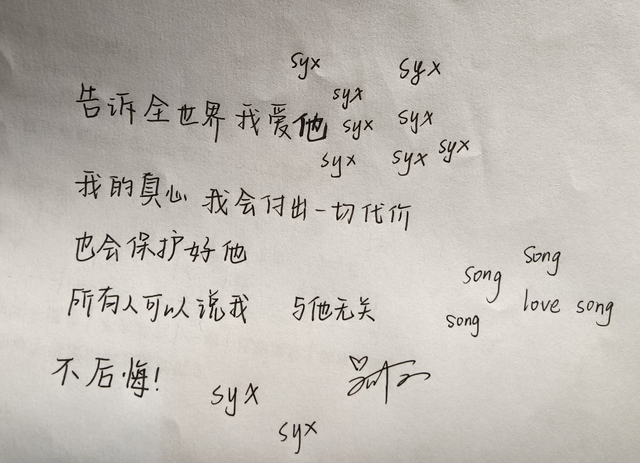 syx syx
syx
告诉全世界 我爱他 syx syx
syx syx syx
我的真心 我会付出一切代价
也会保护好他
song
song
所有人可以说我 与他无关
love song
song
不后悔!
syx
syx